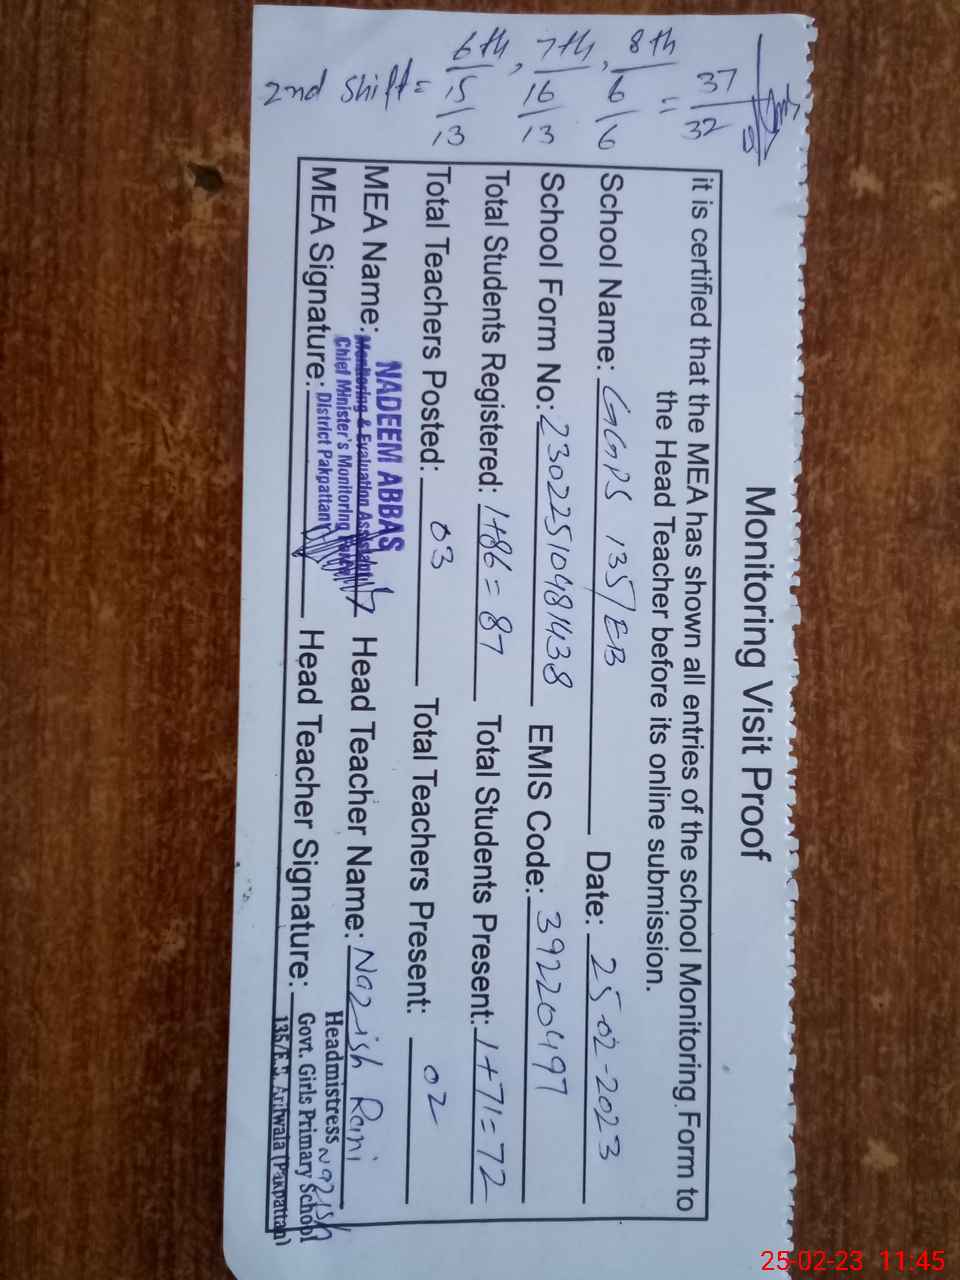 Monitoring Visit Proof
it is certified that the MEA has shown all entries of the school Monitoring Form to
the Head Teacher before its online submission.
School Name: GGPS 135/EB Date: 25-02-2023
School Form No: 23022510481438 EMIS Code: 39220497
Total Students Registered: 1+86=87 Total Students Present: 1+71=72
Total Teachers Posted: 03 Total Teachers Present: 02
MEA Name: NADEEM ABBAS Head Teacher Name: Nazish Rani
Monitoring & Evaluation Assistant
Chief Minister's Monitoring Force
MEA Signature: District Pakpattan Head Teacher Signature: Nazish
Headmistress
Govt. Girls Primary School
135/E.B. Arifwala (Pakpattan)
2nd shift = 6th/15/13, 7th/16/13, 8th/6/6 = 37/32
25-02-23 11:45